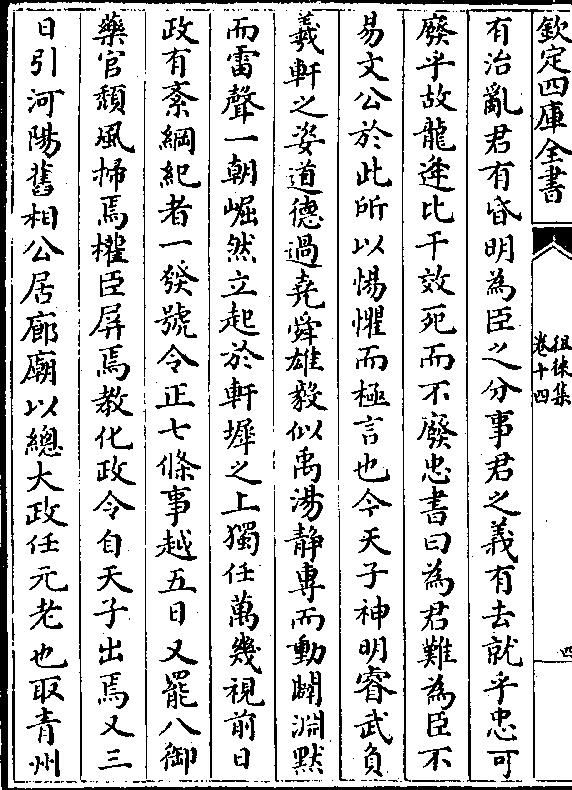 欽定四庫全書
徂徠集
卷十四
四
有治亂君有昏明為臣之分事君之義有去就乎忠可
廢乎故龍逄比干效死而不廢忠書曰為君難為臣不
易文公於此所以惕懼而極言也今天子神明睿武負
羲軒之姿道德過堯舜雄毅似禹湯静專而動闢淵默
而雷聲一朝崛然立起於軒墀之上獨任萬幾視前日
政有紊綱紀者一發號令正七條事越五日又罷八御
藥官頽風掃焉權臣屏焉教化政令自天子出焉又三
日引河陽舊相公居廊廟以總大政任元老也取青州